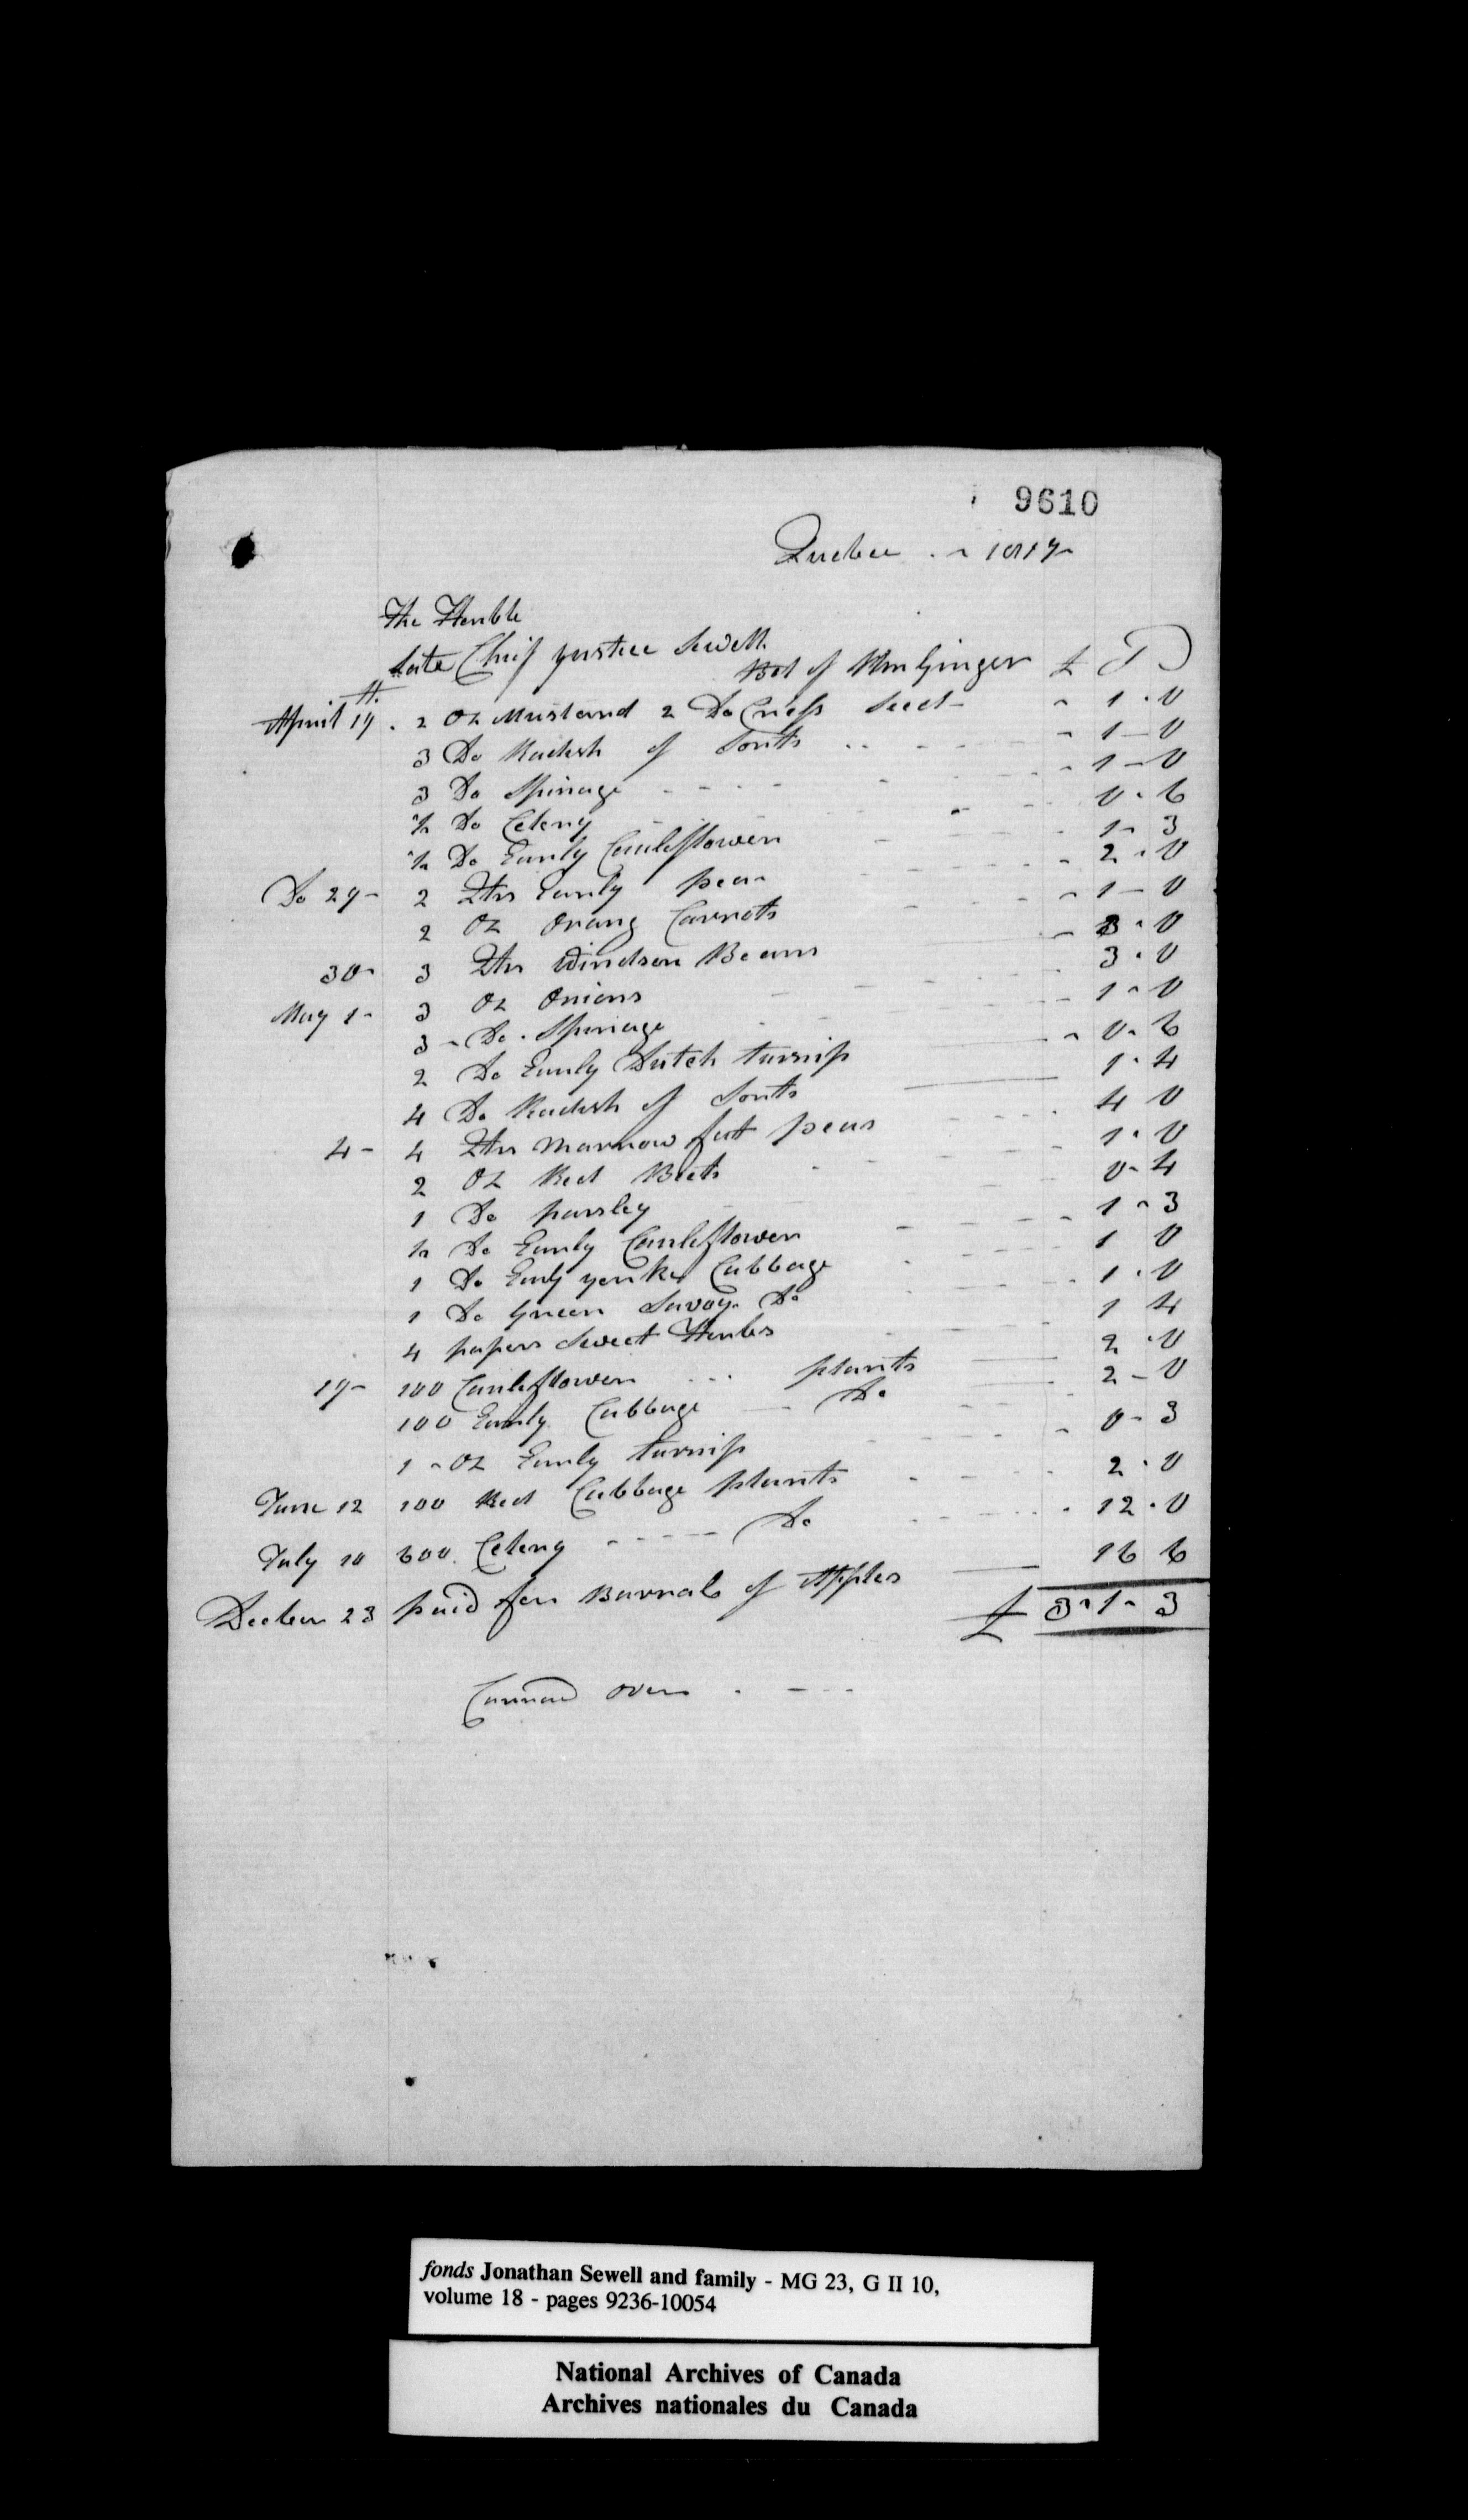 9610
Quebec 1819
The Honble
Late Chief justice Sewell
Bot of Wm Ginger £ S D
April 19th. 2 Oz Mustard 2 Do Cress Seed 1 - 0
3 Do Radish of Sorts 1 - 0
3 Do Spinage 1 - 0
½ Do Celery 0 - 6
½ Do Early Cauleflower 1 - 3
Do 29 - 2 Qtrs Early peas 2 - 0
2 Oz Orang Carrots 1 - 0
30 - 3 Qtrs Windsor Beans 3 - 0
May 1 - 3 Oz Onions 3 - 0
3 - Do. Spinage 1 - 0
2 Do Early Dutch turnip 0 - 6
4 Do Radish of Sorts 1 - 4
4 - 4 Qtrs marrow fat peas 4 0
2 Oz Red Beets 1 - 0
1 Do parsley 0 - 4
½ Do Early Cauleflower 1 - 3
1 Do Early yorke Cabbage 1 0
1 Do Green Savoy Do 1 - 0
4 papers Sweet Herbs 1 4
19 - 100 Cauleflower plants 2 - 0
100 Early Cabbage Do 2 - 0
1 - Oz Early turnip 0 - 3
June 12 100 Red Cabbage plants 2 - 0
July 10 600 Celery Do 12 - 0
Decber 23 paid for Barrale of Apples 16 6
£ 3 - 1 - 3
Carraid over
fonds Jonathan Sewell and family - MG 23, G II 10,
volume 18 - pages 9236-10054
National Archives of Canada
Archives nationales du Canada